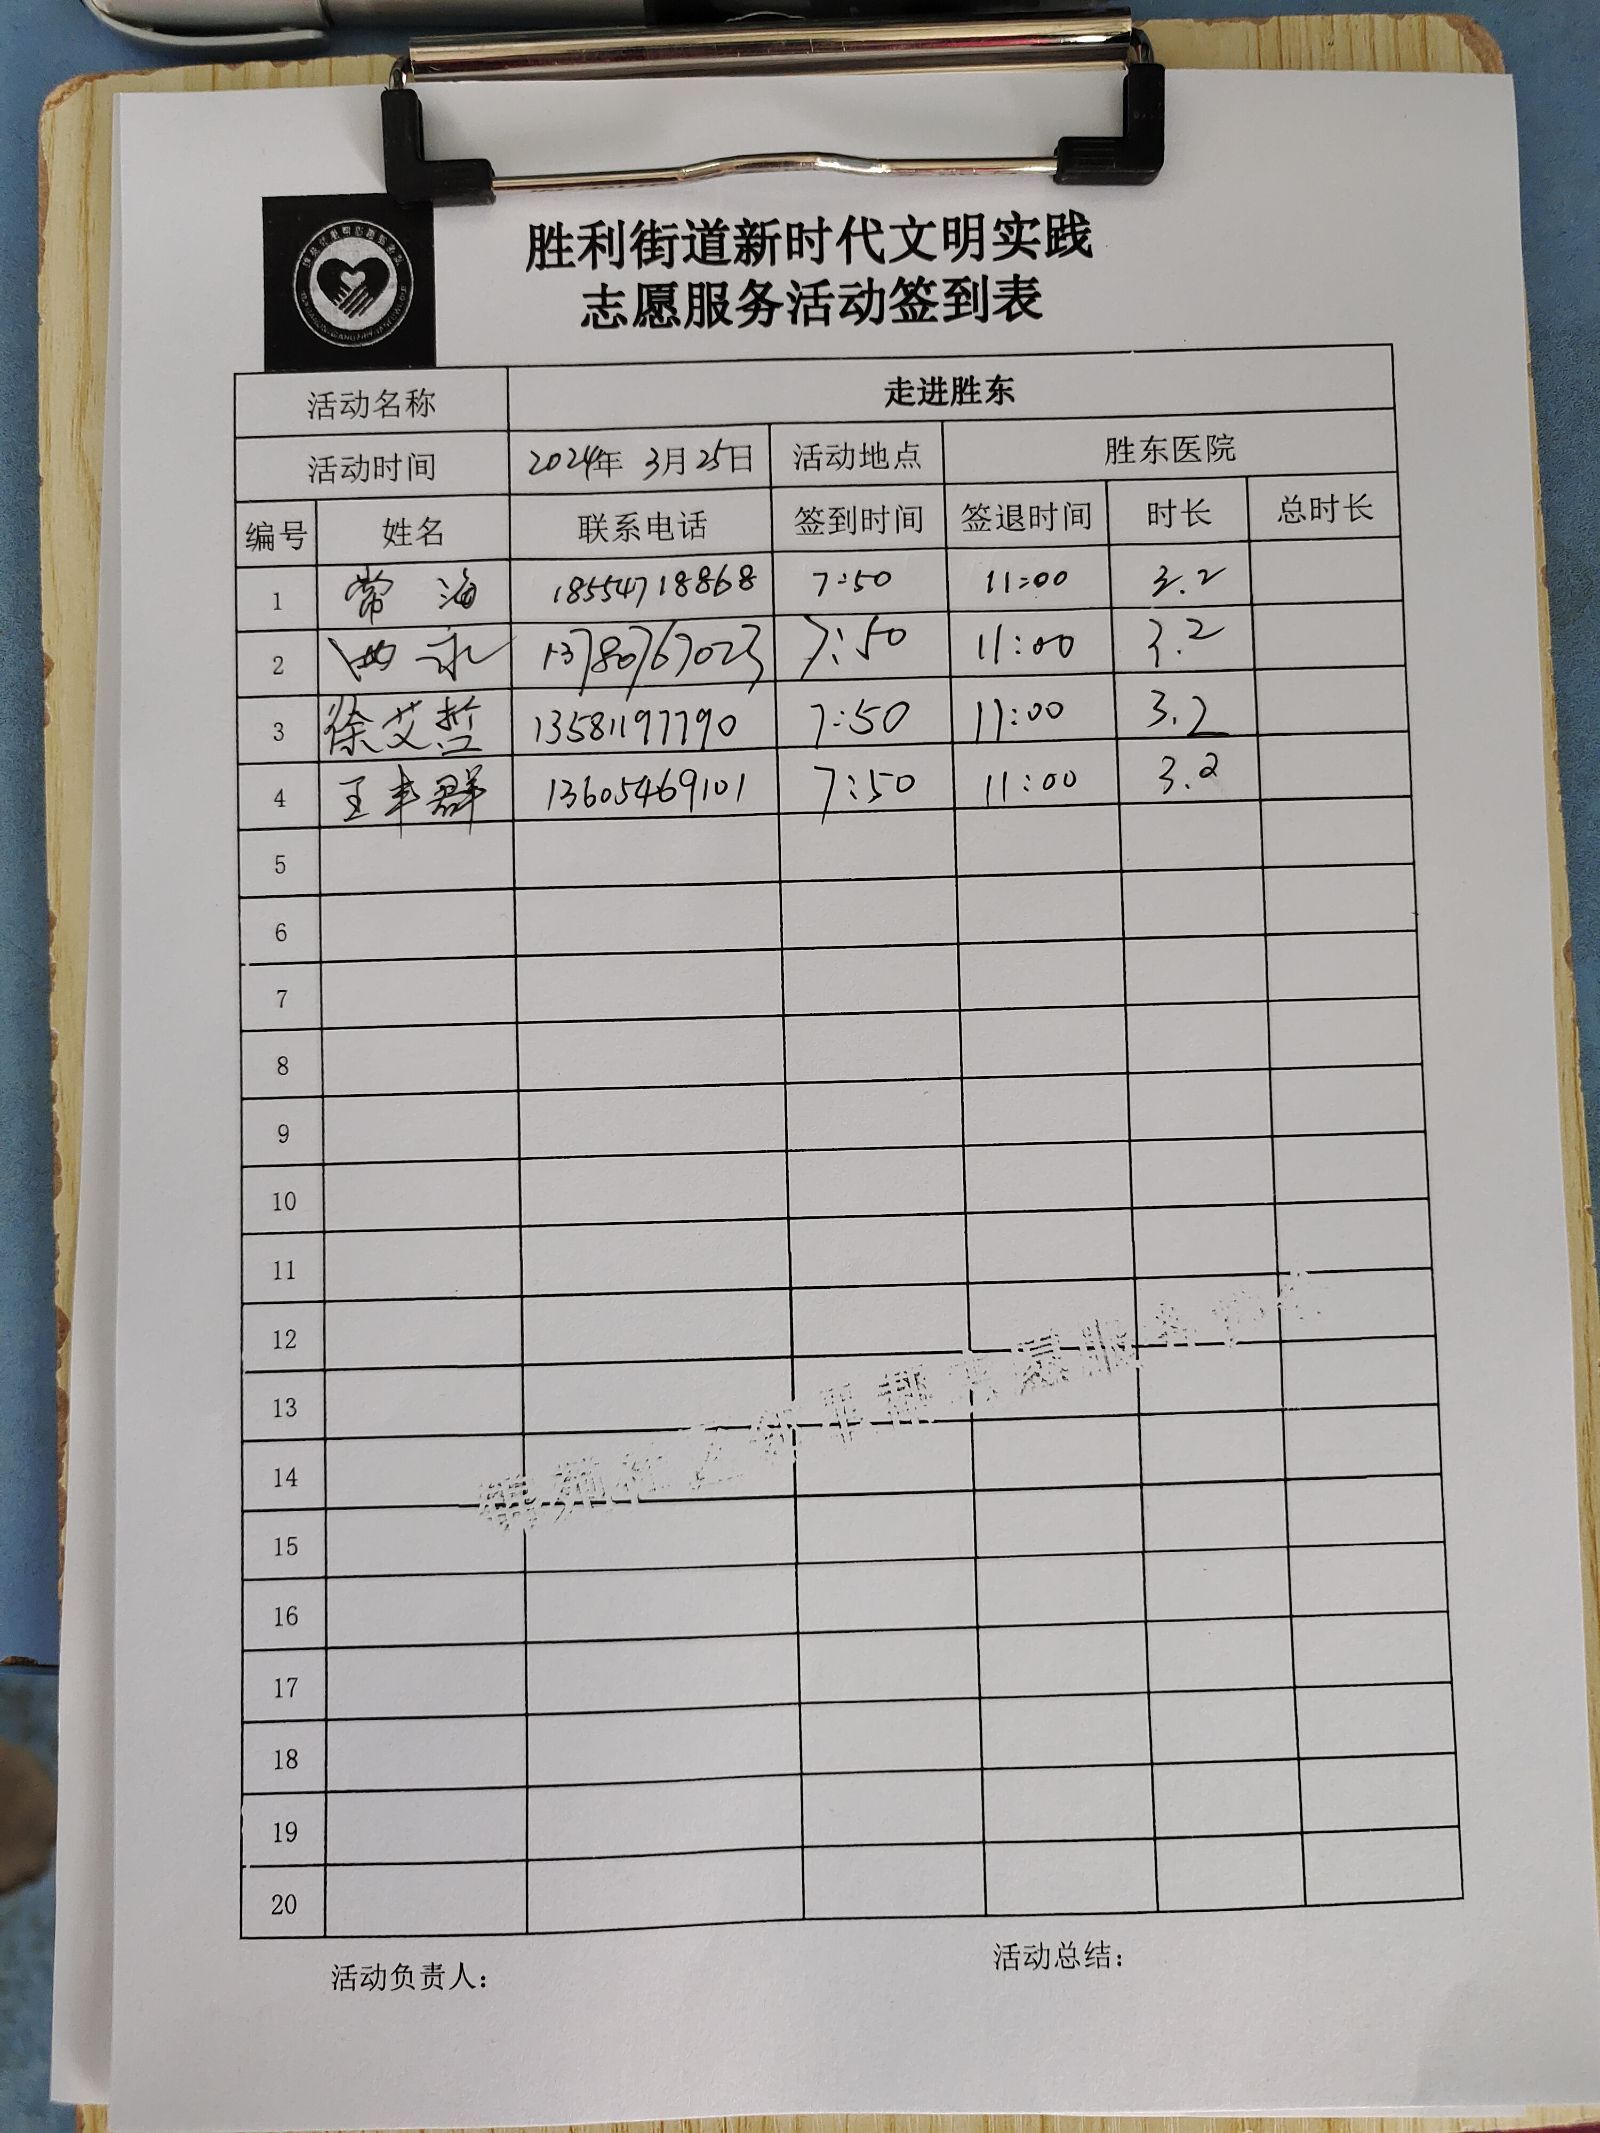 胜利街道新时代文明实践
志愿服务活动签到表
活动名称 走进胜东
活动时间 2024年 3月25日 活动地点 胜东医院
编号 姓名 联系电话 签到时间 签退时间 时长 总时长
1 常海 18554718868 7:50 11:00 3.2
2 永 13780767023 7:50 11:00 3.2
3 徐艾哲 13581197790 7:50 11:00 3.2
4 王丰群 13605469101 7:50 11:00 3.2
5
6
7
8
9
10
11
12
13
14
15
16
17
18
19
20
活动负责人： 活动总结：